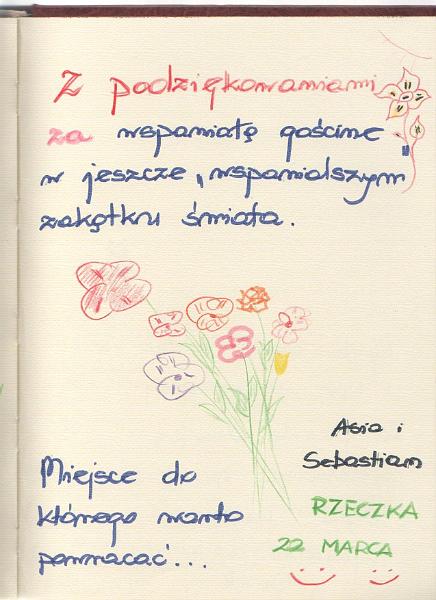 Z podziękowaniami
za wspaniałą gościnę
w jeszcze, wspanialszym
zakątku świata.
Asia i
Sebastian
Miejsce do
którego warto
powracać...
RZECZKA
22 MARCA